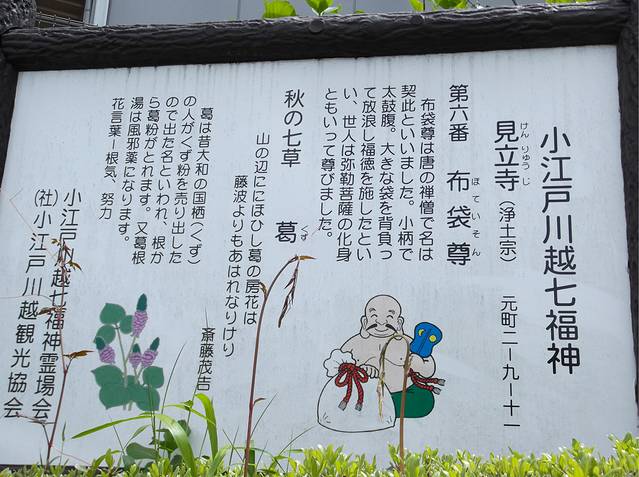 小江戸川越七福神
見立寺（浄土宗）　元町二ー九ー十一
けん りゅう じ
第六番　布袋尊
ほ てい そん
布袋尊は唐の禅僧で名は
契此といいました。小柄で
太鼓腹。大きな袋を背負っ
て放浪し福徳を施したとい
い、世人は弥勒菩薩の化身
ともいって尊びました。
秋の七草　葛
くず
山の辺ににほひし葛の房花は
藤波よりもあはれなりけり
斎藤茂吉
葛は昔大和の国栖（くず）
の人がくず粉を売り出した
ので出た名といわれ、根か
ら葛粉がとれます。又葛根
湯は風邪薬になります。
花言葉ー根気、努力
小江戸川越七福神霊場会
（社）小江戸川越観光協会